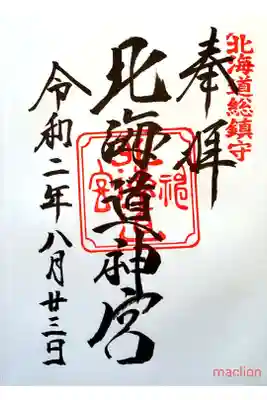 北海道総鎮守
奉拝
北海道神宮
令和二年八月廿三日
maclion